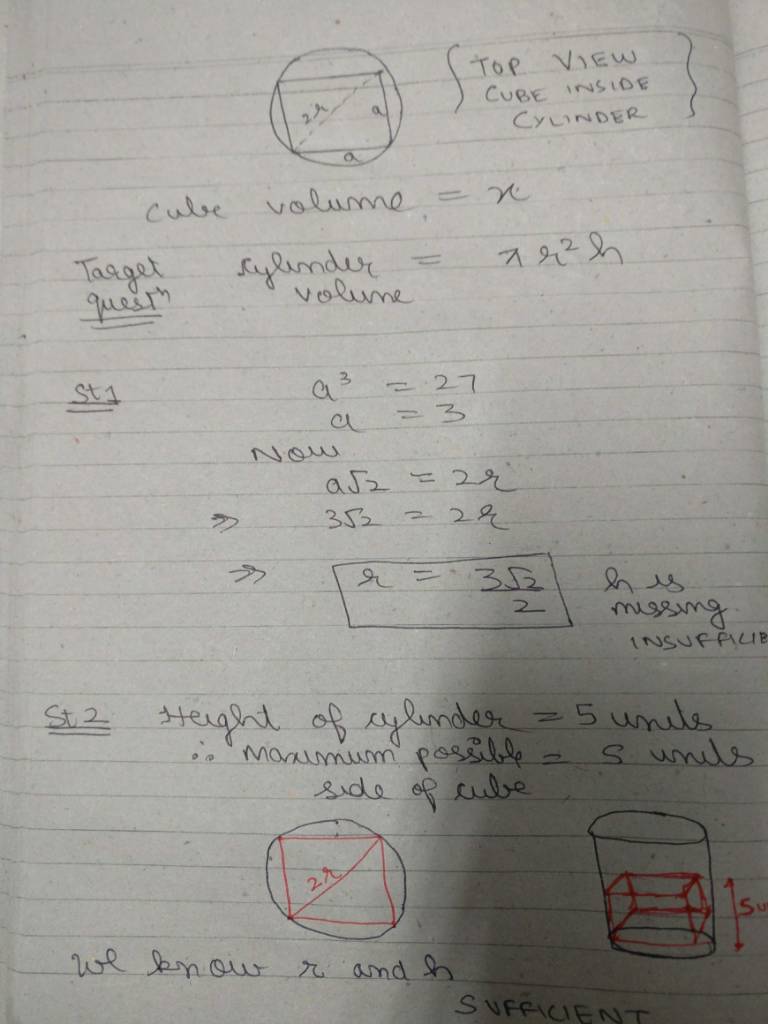 { TOP VIEW
CUBE INSIDE
CYLINDER }
2r a
a
cube volume = x
Target cylinder = πr²h
questⁿ volume
St1 a³ = 27
a = 3
Now
a√2 = 2r
⇒ 3√2 = 2r
⇒ r = 3√2/2 h is
missing
INSUFFICIE
St2 Height of cylinder = 5 units
∴ Maximum possible = 5 units
side of cube
2r
5u
We know r and h
SUFFICIENT